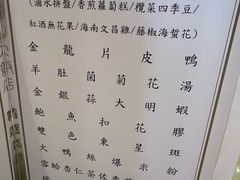 (滷水拼盤/香煎蘿蔔糕/欖菜四季豆/
紅酒無花果/海南文昌雞/藤椒海蜇花)
金龍片皮鴨
羊肚菌菊花湯
金銀蒜大明蝦
鮑魚扣花膠
雙色東星斑
火鴨絲米粉
雪蛤杏仁茶